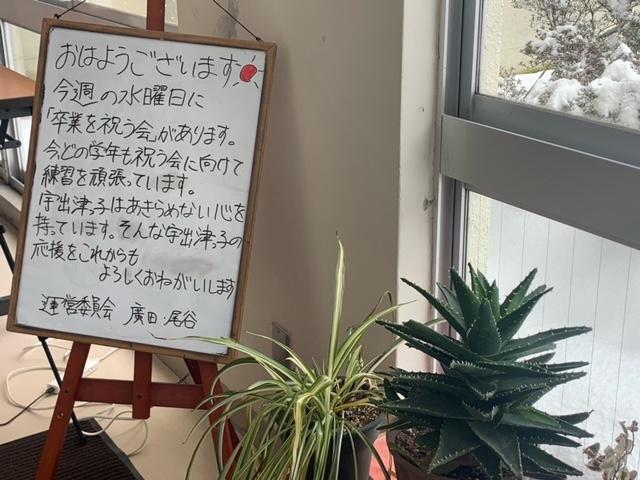 おはようございます
今週の水曜日に
「卒業を祝う会」があります。
今どの学年も祝う会に向けて
練習を頑張っています。
宇出津っ子はあきらめない心を
持っています。そんな宇出津っ子の
応援をこれからも
よろしくおねがいします
運営委員会 廣田・尾谷